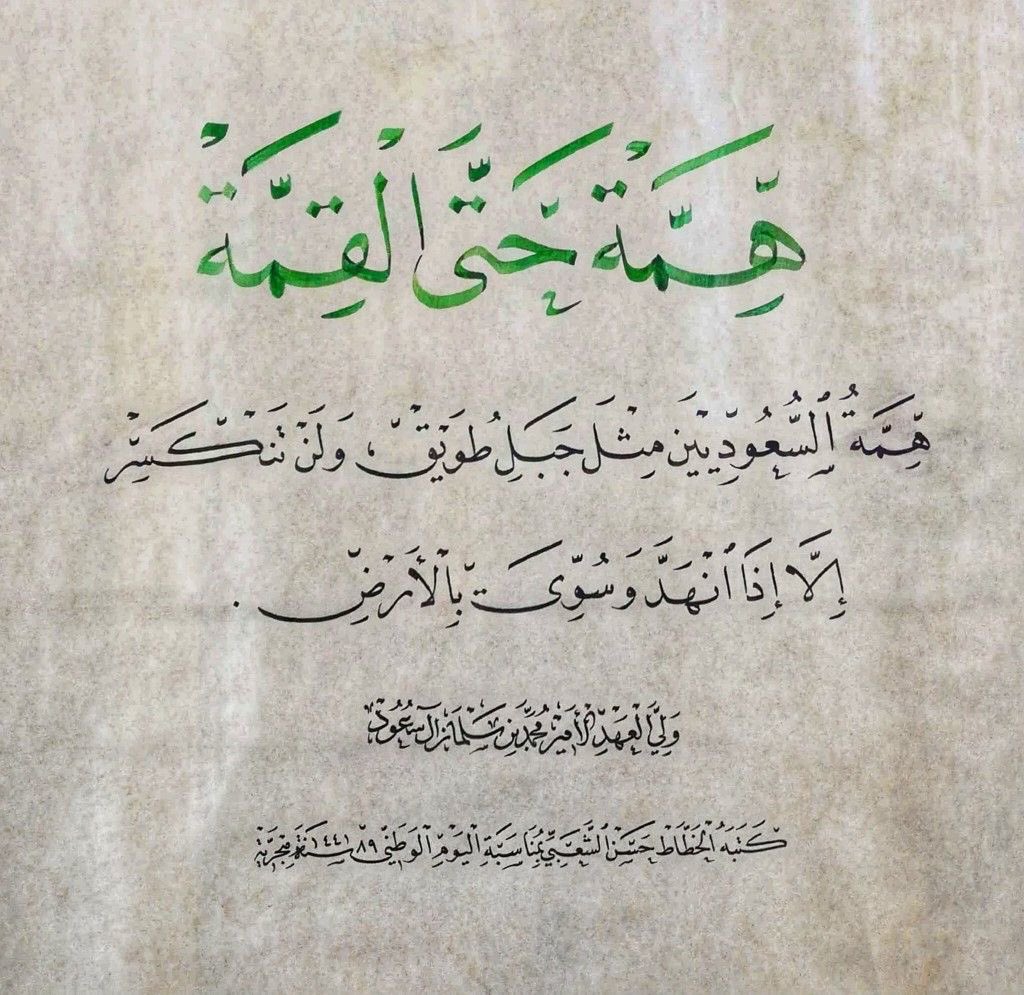 هِمَّةْ حَتَّى الْقِمَّةْ
هِمَّةُ ٱلسُّعُودِيِّينَ مِثْلَ جَبَلِ طُوَيْق، وَلَنْ تَنْكَسِرْ
إِلَّا إِذَا ٱنْهَدَّ وَسُوِّيَ بِالْأَرْضِ .
وَلِيُّ الْعَهْدِ الْأَمِيرْ مُحَمَّدْ بِنْ سَلْمَانْ آل سُعُودْ
كَتَبَهُ الْخَطَّاط حَسَنْ الشَّعْبِيّ بِمُنَاسَبَةِ الْيَوْمِ الْوَطَنِيّ ٨٩ سَنَة ١٤٤١ هِجْرِيَّة